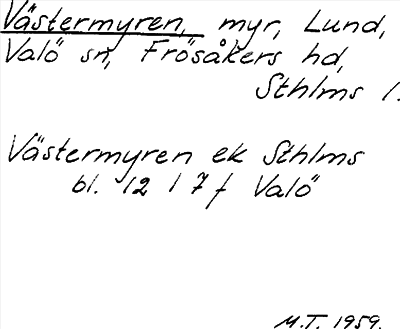 Västermyren, myr, Lund,
Valö sn, Frösåkers hd,
Sthlms l.
Västermyren ek Sthlms
bl. 12 I 7 f Valö
M.T. 1959.